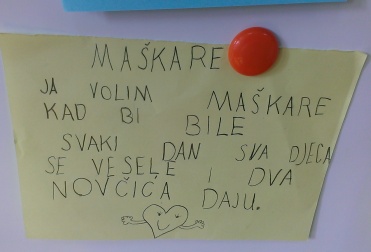 MAŠKARE
JA VOLIM MAŠKARE
KAD BI BILE
SVAKI DAN SVA DJECA
SE VESELE I DVA
NOVČIĆA DAJU.